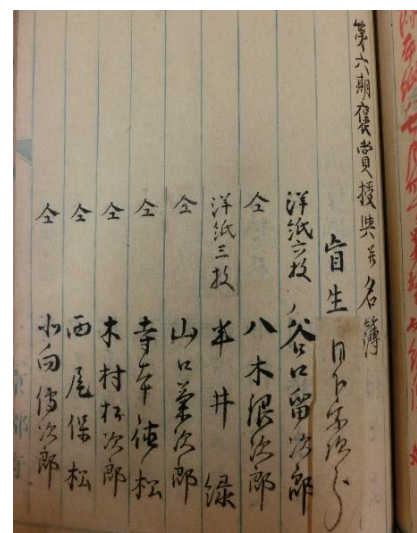 第六期褒賞授与生名簿
盲生 日下宗次郎
洋紙六枚 谷口留次郎
仝 八木銀次郎
洋紙三枚 半井緑
仝 山口菊次郎
仝 寺本徳松
仝 木村松次郎
仝 西尾保松
仝 小向傳次郎